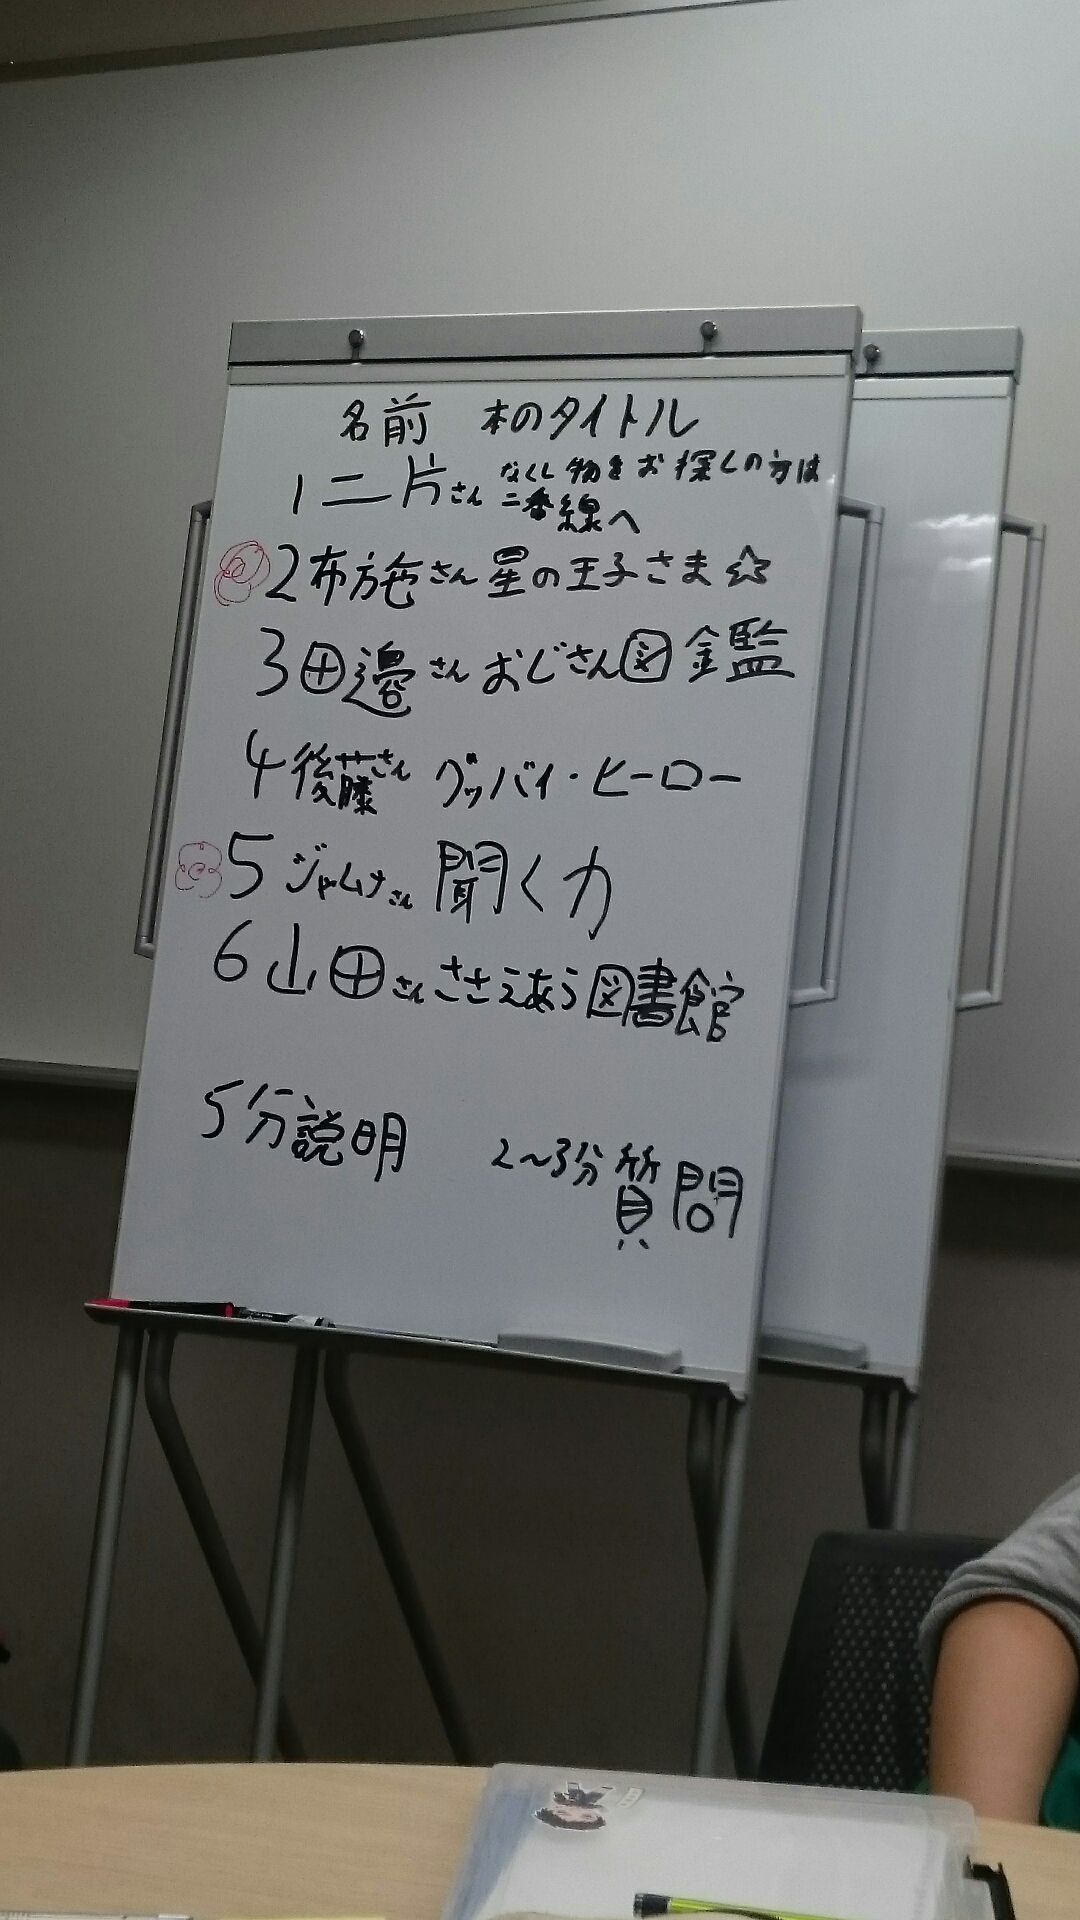 名前 本のタイトル
1 二片さん なくし物をお探しの方は
二番線へ
2 布施さん 星の王子さま☆
3 田邊さん おじさん図鑑
4 後藤さん グッバイ・ヒーロー
5 ジャムナさん 聞く力
6 山田さん ささえあう図書館
5分説明 2～3分質問